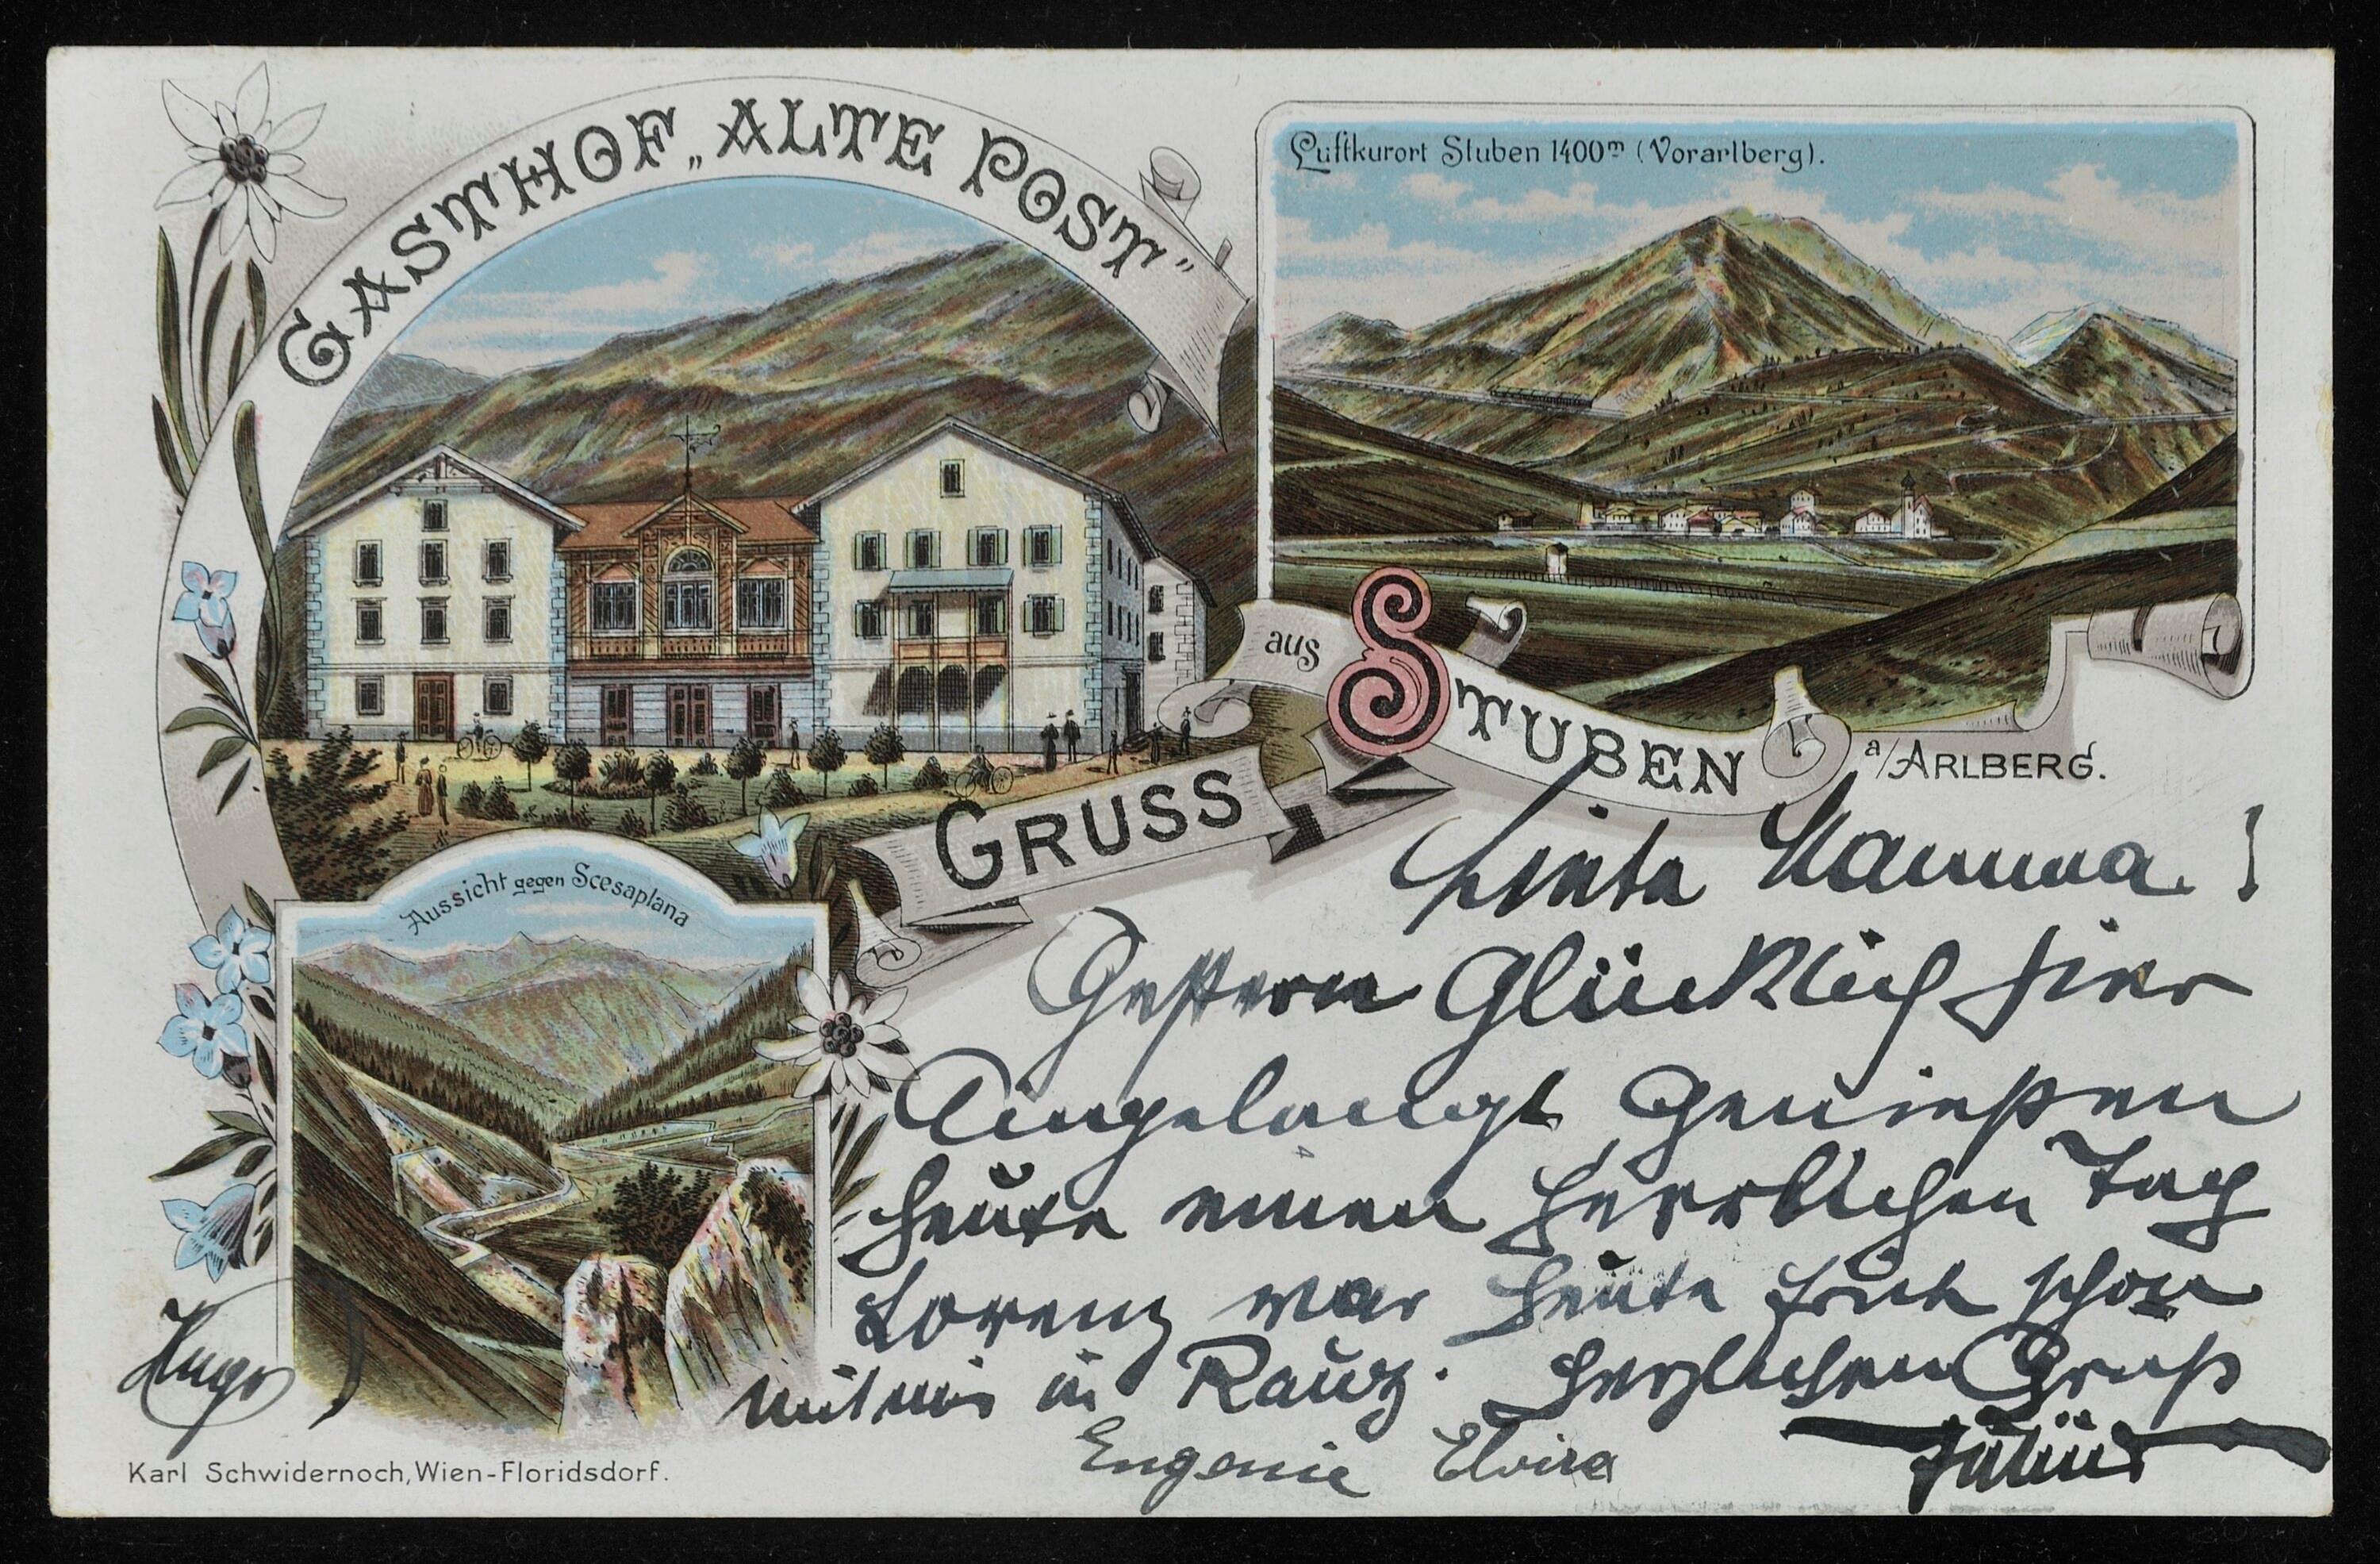 GASTHOF „ALTE POST"
Luftkurort Stuben 1400m (Vorarlberg).
GRUSS
aus STUBEN
a/ARLBERG.
Aussicht gegen Scesaplana
Liebe Mamma!
Gestern Glücklich hier
Angelangt Genießen
heute einen herrlichen Tag
Lorenz war heute früh schon
mit mir in Rauz. Herzlichen Gruß
Julius
Eugenie Elvira
Hugo
Karl Schwidernoch, Wien-Floridsdorf.